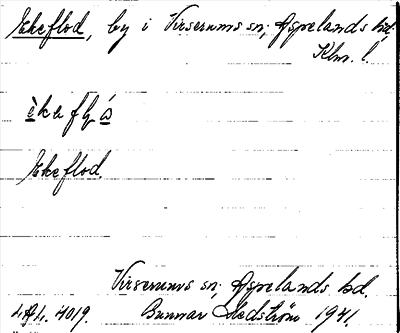 Ekeflod, by i Virserums sn, Aspelands hd.
Klm. l.
èkafló
Ekeflod.
Virserums sn, Aspelands hd.
Gunnar Hedström 1941.